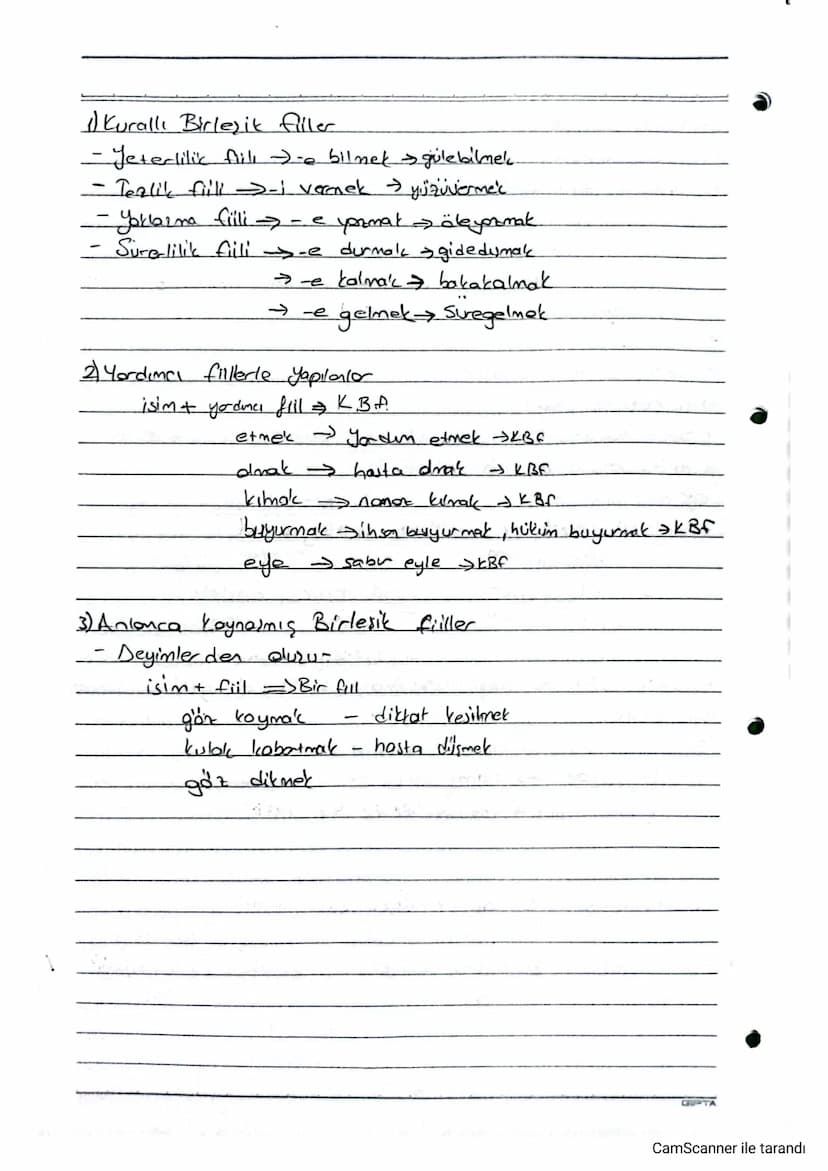 1) Kurallı Birleşik filler
- Yeterlilik fiili → -e bilmek → gülebilmek
- Tezlik fiili → -i vermek → yüzüvermek
- Yaklaşma fiili → -e yazmak → öleyazmak
- Sürelilik fiili → -e durmak → gidedurmak
→ -e kalmak → bakakalmak
→ -e gelmek → Süregelmek
2) Yardımcı fillerle yapılanlar
isim + yardımcı fiil ⇒ K.B.f.
etmek → Yardım etmek → KBf
olmak → hasta olmak → KBf
kılmak → namaz kılmak → KBf
buyurmak → ihsan buyurmak, hüküm buyurmak → KBf
eyle → sabır eyle → KBf
3) Anlamca Kaynaşmış Birleşik fiiller
- Deyimlerden oluşu-
isim + fiil ⇒ Bir fiil
göz koymak - dikkat kesilmek
kulak kabartmak - hasta düşmek
göz dikmek
GIPTA
CamScanner ile tarandı